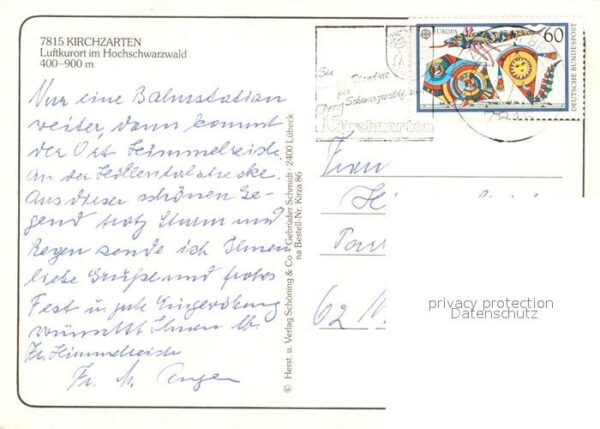 7815 KIRCHZARTEN
Luftkurort im Hochschwarzwald
400–900 m
Nur eine Bahnstation
weiter, dann kommt
der Ort Himmelreich
in der Höllentalstrecke.
Aus dieser schönen Ge-
gend trotz Sturm und
Regen sende ich Ihnen
liebe Grüße und frohes
Fest u. gute
wünscht Ihnen
Fr. Himmelreich
Fr. M.
© Herst. u. Verlag Schöning & Co + Gebrüder Schmidt · 2400 Lübeck
na Bestell-Nr. Kirza 86
EUROPA
60
DEUTSCHE BUNDESPOST
Schwarzwald
Kirchzarten
7815
62
privacy protection
Datenschutz